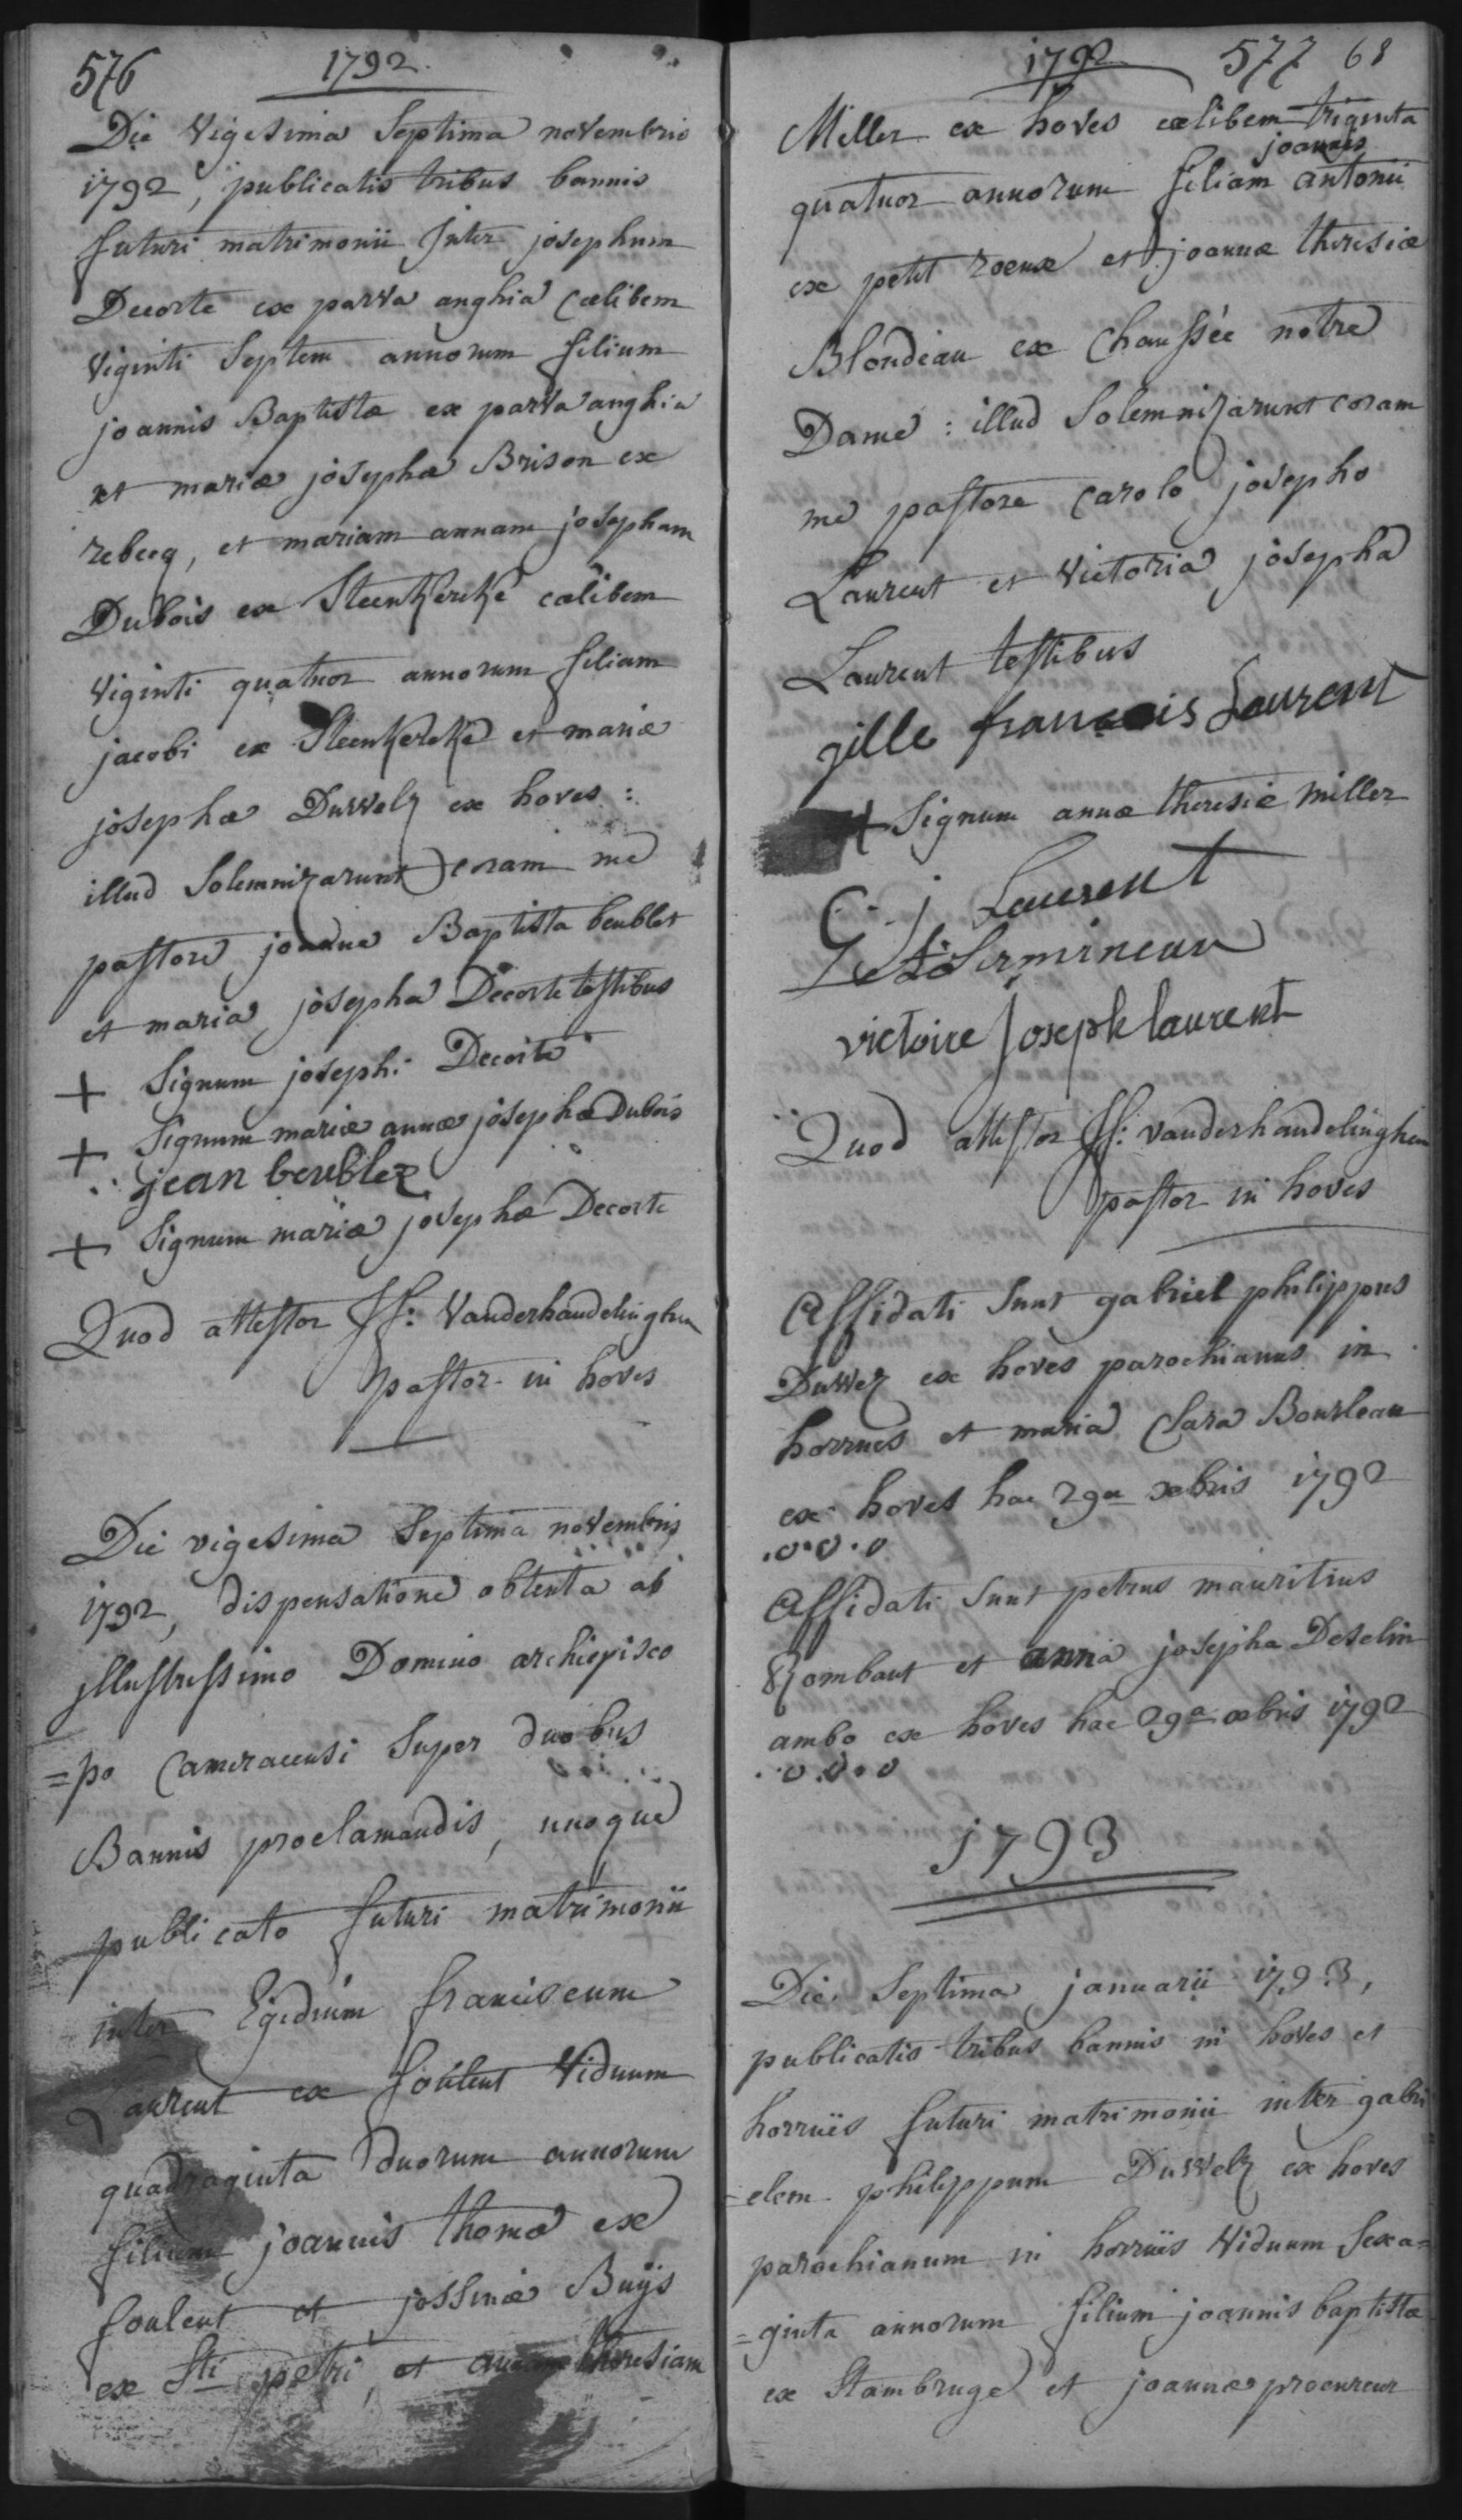 576 1792.
Die Vigesima Septima novembris
1792, publicatis tribus bannis
futuri matrimonii Inter josephum
Decorte ex parva anghia Cælibem
Viginti Septem annorum filium
joannis Baptistæ ex parva anghia
et mariæ josephæ Brison ex
rebecq, et mariam annam josepham
Dubois ex Steenkercke cælibem
Viginti quatuor annorum filiam
jacobi ex Steenkercke et mariæ
josephæ Duvvelz ex hoves :
illud Solemnizarunt coram me
pastore joanne Baptista beublet
et maria josepha Decorte testibus
+ Signum josephi Decorte
+ Signum mariæ annæ josephæ Dubois
jean beublez
+ Signum mariæ josephæ Decorte
Quod attestor JF: Vanderhaudelinghen
pastor in hoves
Die vigesima Septima novembris
1792, dispensatione obtenta ab
illustrissimo Domino archiepisco
=po Cameracensi Super duobus
Bannis proclamandis, unoque
publicato futuri matrimonii
inter Egidium franciscum
Laurent ex foulent Viduum
quadraginta duorum annorum
filium joannis thoma ex
foulent et jossinæ Buÿs
ex Sti petri, et annam theresiam
1792 577 68
Miller ex hoves cælibem triginta
joannis
quatuor annorum filiam antonii
ex petit roeux et joannæ theresiæ
Blondeau ex Chaussée notre
Dame : illud Solemnizarunt coram
me pastore Carolo josepho
Laurent et Victoria josepha
Laurent testibus
gille francois Laurent
+ Signum annæ theresiæ Miller
C. j Laurent
victoire Joseph laurent
Quod attestor JF: vanderhaudelinghen
pastor in hoves
Affidati Sunt gabriel philippus
Duvvez ex hoves parochianus in
horrues et maria Clara Bourleau
ex hoves hac 29a xbris 1792
Affidati Sunt petrus mauritius
Rombaut et anna josepha Deselin
ambo ex hoves hac 29a xbris 1792
1793
Die Septima januarii 1793,
publicatis tribus bannis in hoves et
horruës futuri matrimonii inter gabri
=elem philippum Duvvelz ex hoves
parochianum in horruës Viduum Sexa=
=ginta annorum filium joannis baptistæ
ex Stambruge et joannæ procureur